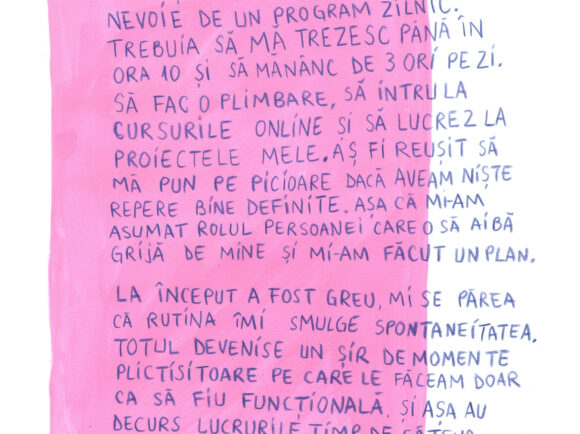 NEVOIE DE UN PROGRAM ZILNIC.
TREBUIA SĂ MĂ TREZESC PÂNĂ ÎN
ORA 10 ȘI SĂ MĂNÂNC DE 3 ORI PE ZI.
SĂ FAC O PLIMBARE, SĂ INTRU LA
CURSURILE ONLINE ȘI SĂ LUCREZ LA
PROIECTELE MELE. AȘ FI REUȘIT SĂ
MĂ PUN PE PICIOARE DACĂ AVEAM NIȘTE
REPERE BINE DEFINITE. AȘA CĂ MI-AM
ASUMAT ROLUL PERSOANEI CARE O SĂ AIBĂ
GRIJĂ DE MINE ȘI MI-AM FĂCUT UN PLAN.
LA ÎNCEPUT A FOST GREU, MI SE PĂREA
CĂ RUTINA ÎMI SMULGE SPONTANEITATEA.
TOTUL DEVENISE UN ȘIR DE MOMENTE
PLICTISITOARE PE CARE LE FĂCEAM DOAR
CA SĂ FIU FUNCȚIONALĂ. ȘI AȘA AU
DECURS LUCRURILE TIMP DE CÂTEVA